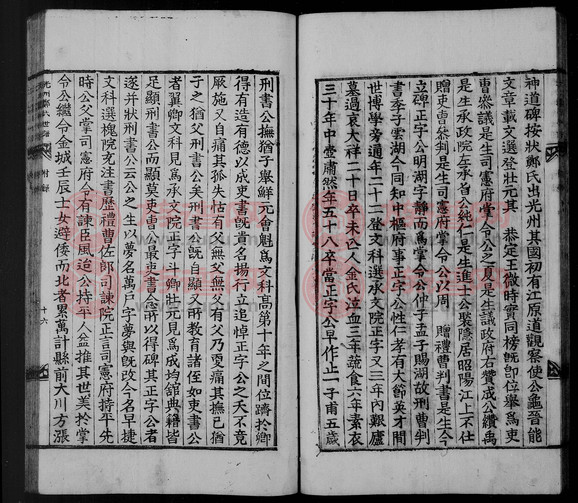 神道碑按狀鄭氏出光州其國初有江原道觀察使公龜晉能
文章載文選登壯元其 恭定正微時實同榜旣卽位擧爲吏
曹叅議是生司憲府掌令公之夏是生議政府右贊成公纘禹
是生承政院左承旨公純仁是生進士公褧隱居昭陽江上不仕
贈吏曹叅判是生司憲府掌令公以周 贈禮曹判書是生今
立碑正字公明湖字靜而爲掌令公仲子孟子賜湖故刑曹判
書季子雲湖今同知中樞府事正字公性仁孝有大節英才間
世博學旁通年二十二登文科選承文院正字又三年內艱廬
墓過哀大祥二十日卒未亡人金氏泣血三年蔬食六年素衣
三十年中堂肅然年五十八卒當正字公早作止一子甫五歲
刑書公撫猶子擧鮮元會魁爲文科高第十年之間位躋於卿
得有造有德以成吏書旣貴名揚行立追悼正字公之夭不竟
厥施又自痛其孤失怙有父無父無父有父乃更痛其撫已猶
子之猶父刑書公矣刑書公旣自顯又所敎育諸侄如吏書公
者翼卿文科見爲承文院正字斗卿壯元見爲成均館典籍皆
足顯刑書公而顯莫吏曹公最吏書公會所以得碑其正字公者
遂幷狀刑書公云公之生以夢名萬戶字夢與旣改今名早捷
文科選槐院充注書歷禮曹佐郎司諫院正言司憲府持平先
時公父掌司憲府令有諫臣風迨公持平人益推其世美於掌
令公繼令金城壬辰士女避倭而北者累萬計縣前大川方漲
光州鄭氏世譜
附錄
十六